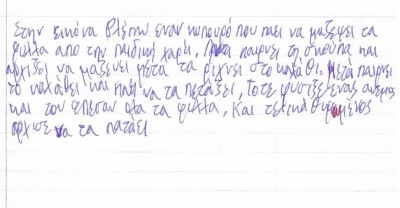 Στην εικόνα βλέπω εναν κηπουρό που παει να μαζεψει τα
φυλλα απο την παιδική χαρα, παιρνει τη σκουπα και
αρχιζει να μαζευει μετα τα ριχνει στο καλαθι. Μετά παιρνει
το καλαθι και παει να τα πεταξει, τοτε φυσιξε ενας ανεμος
και του επεσαν ολα τα φυλλα, και τελικα θυμωμένος
αρχισε να τα παταει